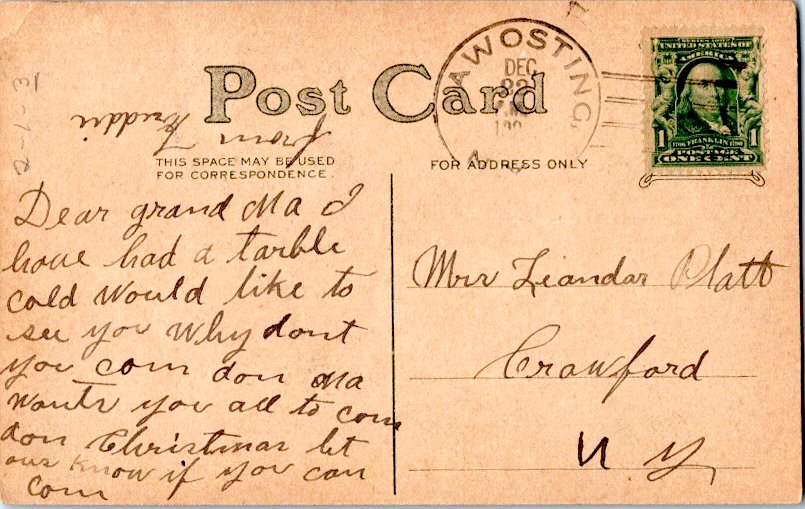 Post Card
THIS SPACE MAY BE USED
FOR CORRESPONDENCE
FOR ADDRESS ONLY
AWOSTING,
DEC
SERIES 1902
UNITED STATES OF
AMERICA
1 FRANKLIN 1
POSTAGE
ONE CENT
2-1-3
from
Dear grand Ma I
have had a tarble
cold would like to
see you why dont
you com don Ma
wants you all to com
don Christmas let
ous know if you can
com
Mrs Leandar Platt
Crawford
N Y